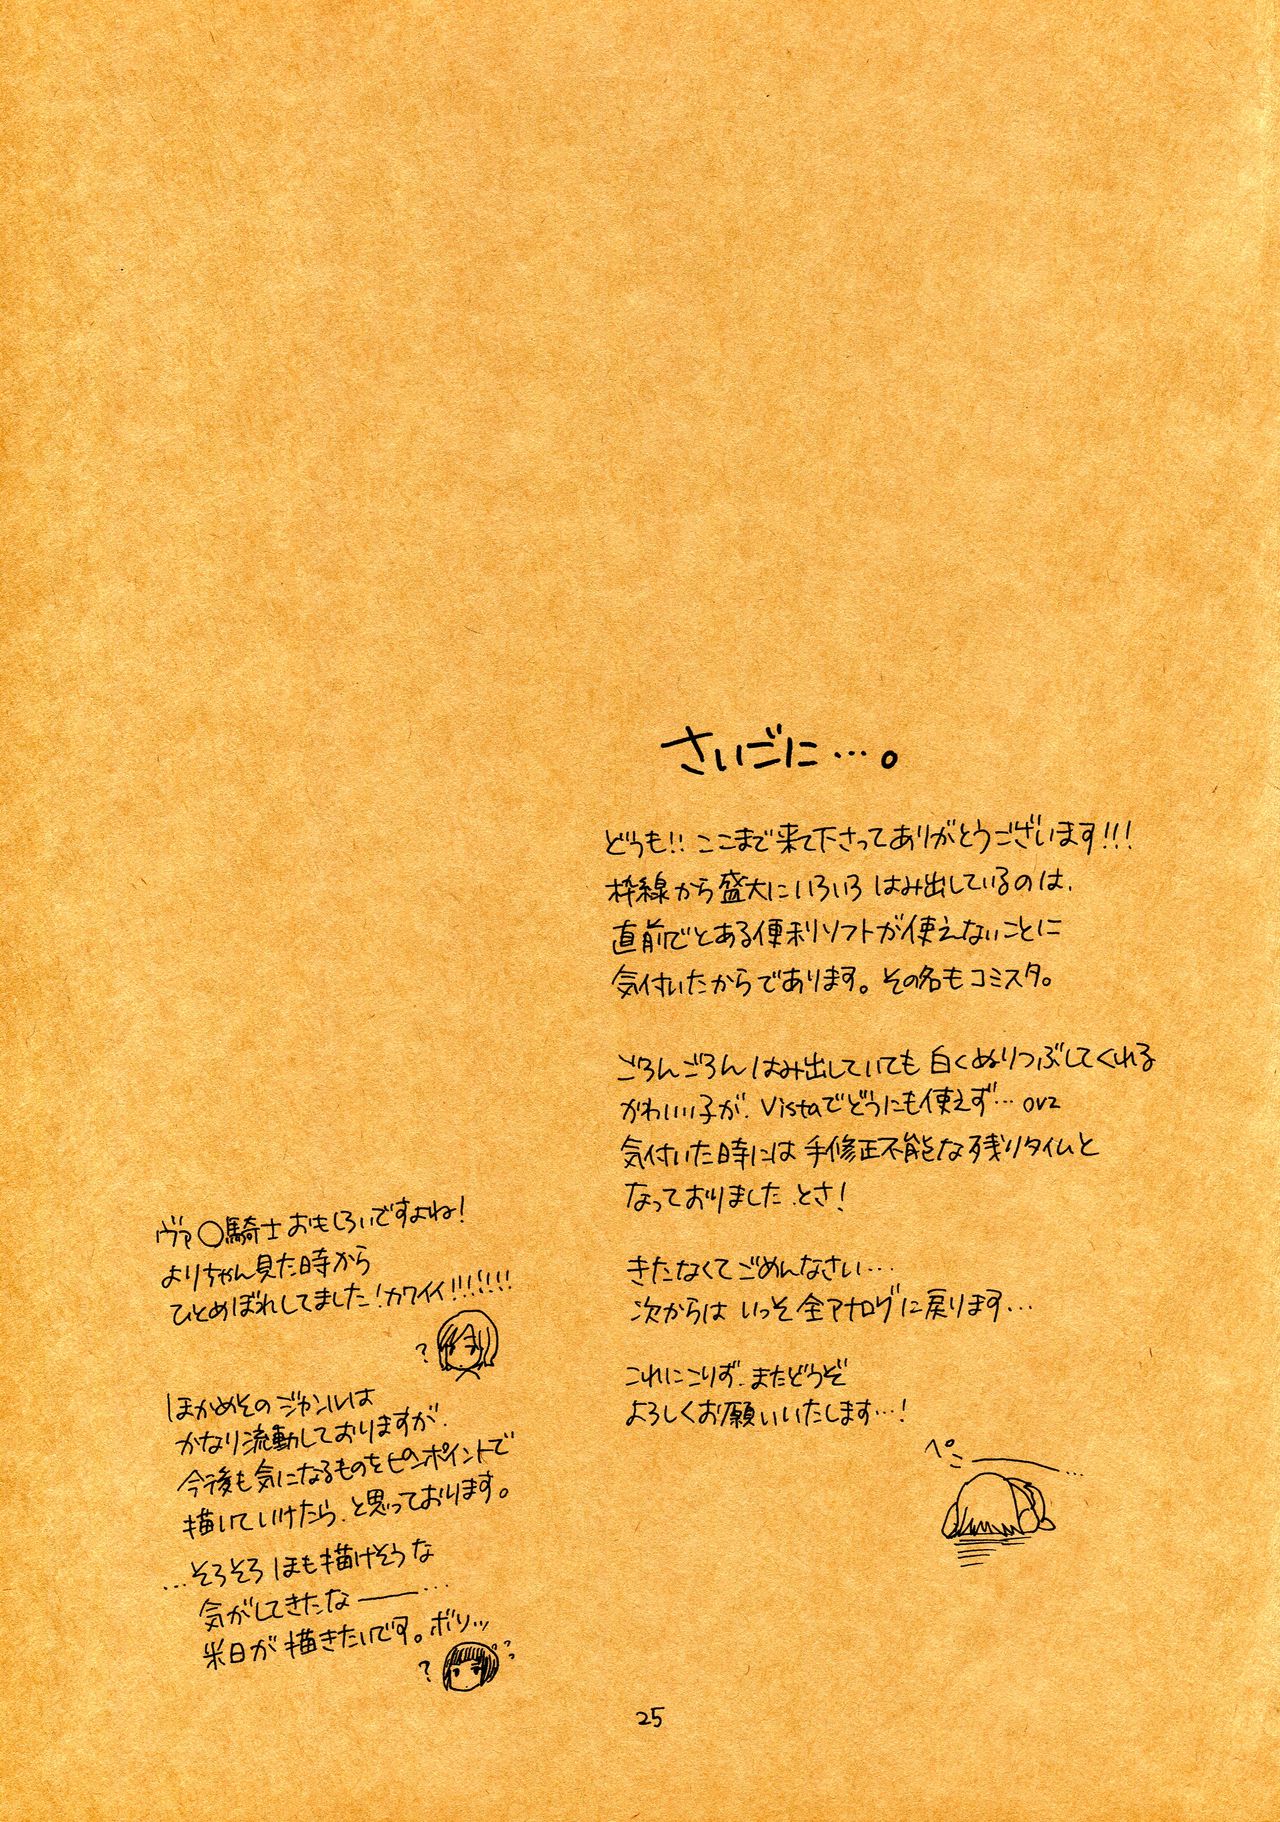 さいごに…。
どうも!! ここまで来て下さってありがとうございます!!!
枠線から盛大にいろいろ はみ出しているのは、
直前でとある便利ソフトが使えないことに
気付いたからであります。その名もコミスタ。
ごろんごろん はみ出していても 白くぬりつぶしてくれる
かわいい子が、Vistaでどうにも使えず…orz
気付いた時には 手修正不能な残りタイムと
なっておりました、とさ!
きたなくてごめんなさい…
次からは いっそ全アナログに戻ります…
これにこりず、またどうぞ
よろしくお願いいたします…!
ペこー…
ヴァ○騎士おもしろいですよね!
よりちゃん見た時から
ひとめぼれしてました!カワイイ!!!!!!
?
ほかめその ジャンルは
かなり流動しておりますが、
今後も気になるものをピンポイントで
描いていけたら、と思っております。
…そろそろ ほも描けそうな
気がしてきたなー…
米日が描きたいです。ボソッ
? ??
25